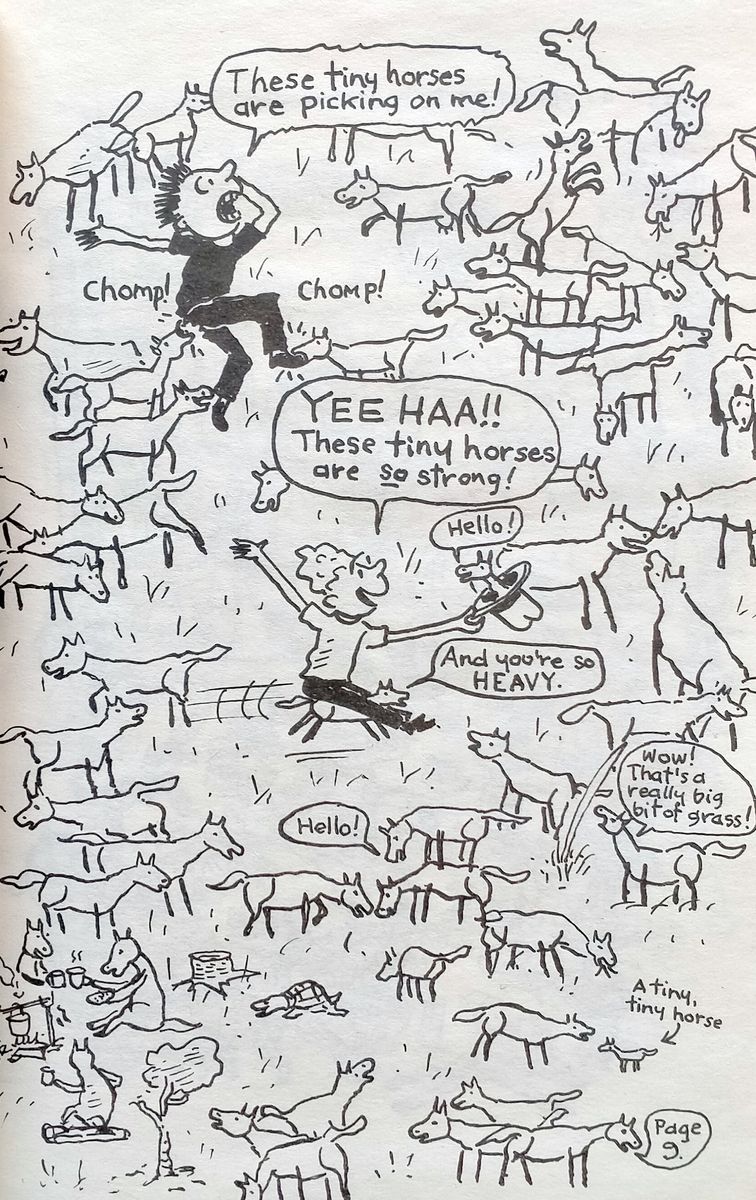 These tiny horses
are picking on me!
Chomp!
Chomp!
YEE HAA!!
These tiny horses
are so strong!
Hello!
And you're so
HEAVY.
Wow!
That's a
really big
bit of grass!
Hello!
A tiny,
tiny horse
Page
9.